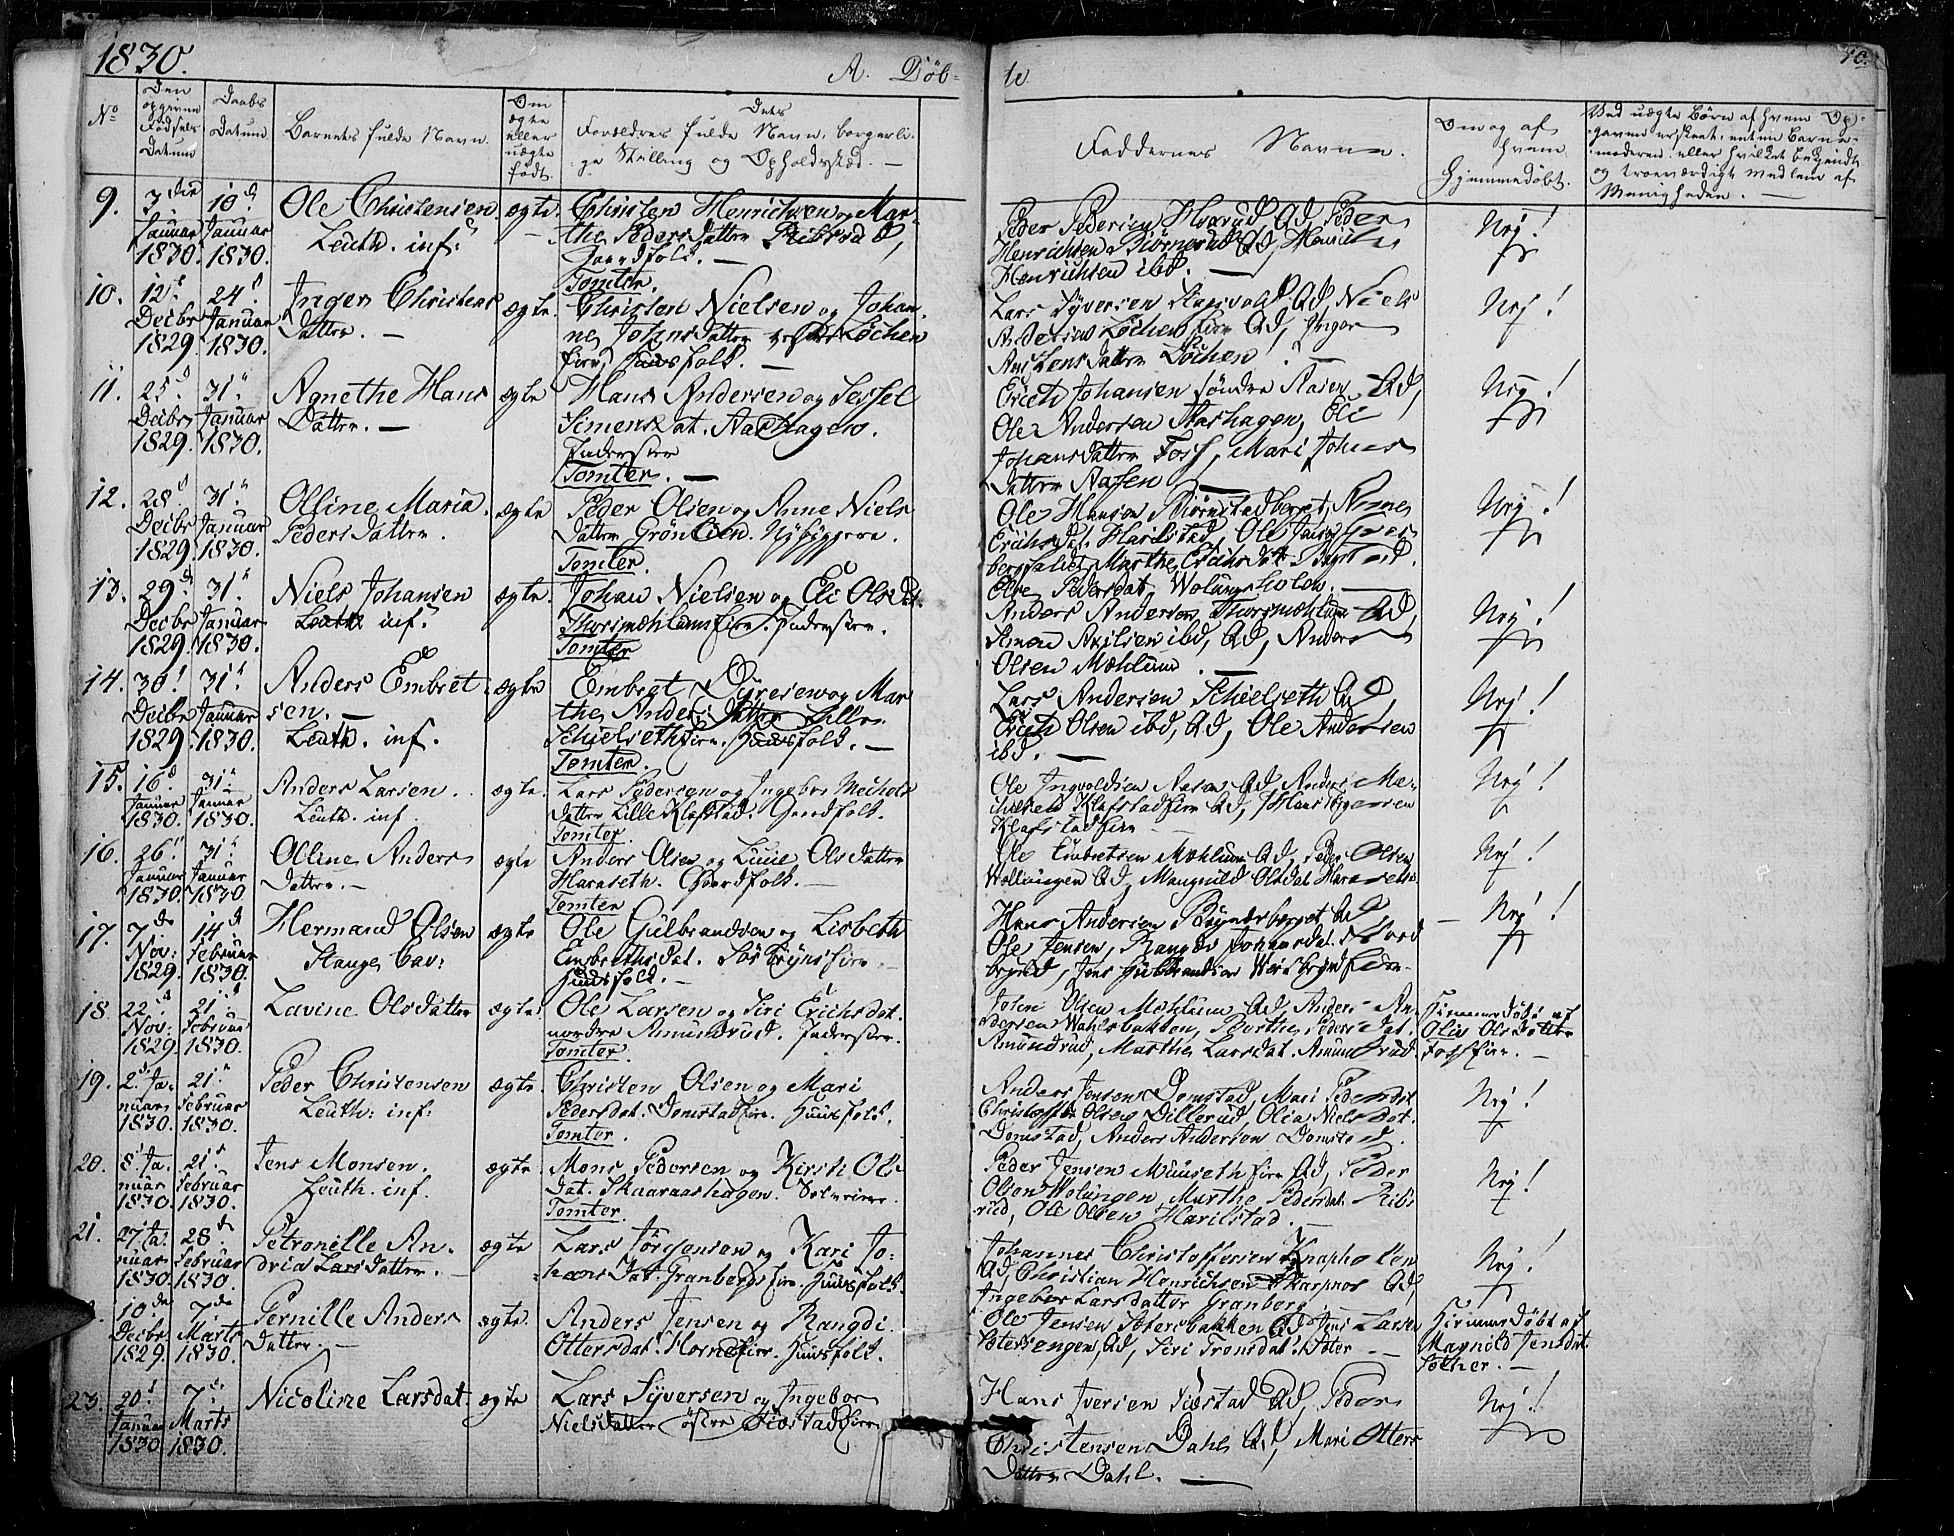 1830.
A. Døb-
te
10.
No
Den opgivne Fødsels Datum
Daabs Datum
Barnets fulde Navn.
Om ægte eller uægte født.
Forældres fulde Navn, borgerli-
ge Stilling og Opholdssted. —
Faddernes Navne.
Om og af hvem hjemmedøbt.
Ved uægte Børn af hvem Op-
gaven er skeet, enten Barne-
moderen eller hvilket bekjendt
og troeværdigt Medlem af
Menigheden. —
9.
Januar
1830.
10
Januar
1830.
Ole Christensen
Leuth. inf:
ægte.
Christen Henrichsen og Mar-
the Pedersdatter Ribsrud,
Gaardfolk. —
Peder Pedersen Hvarud Qd, Peder
Henrichsen Biørnerud Qd,
Henrichsen ibd. —
Nej!
10.
12
Decbr
1829.
24
Januar
1830.
Inger Christens
Datter. —
ægte.
Tomter.
Christen Nielsen og Johan-
ne Johnsdatter Løchen
Huusfolk. —
Lars Syversen Qd, Niels
Andersen Løchen Qd, Inger
Datter Løchen. —
Nej!
11.
25
Decbr
1829.
31
Januar
1830.
Agnethe Hans
Datter. —
ægte
Hans Andersen og Sessel
Simensdat. Aashagen.
Inderster
Tomter. —
Erich Johansen søndre Aasen Qd,
Ole Andersen Aashagen, Eli
Johansdatter Foss, Mari Johans
Datter Aasen —
Nej!
12.
28
Decbr
1829.
31
Januar
1830.
Olline Maria
Pedersdatter.
ægte
Peder Olsen og Anne Niels
Datter Grønlien. Nybyggere.
Tomter.
Ole Hansen Biørnstadberget,
Erichsdat. Harilstad, Ole Jansen
Marthe Erichsdatt
Else Pedersdat
Nej!
13.
29
Decbr
1829.
31
Januar
1830.
Niels Johansen
Leuth inf:
ægte.
Johan Nielsen og Eli Olsdat.
Thorsmæhlum Inderster.
Tomter
Anders Andersen Thorsmæhlum Qd,
Simon Axilsen ibd, Qd, Anders
Olsen Mæhlum —
Nej!
14.
30
Decbr
1829.
31
Januar
1830.
Anders Embret-
sen. —
Leuth. inf.
ægte
Embret Dyresen og Mar
the Andersdatter Lille
Schielseth Huusfolk. —
Tomter.
Lars Andersen Schielseth Qd,
Erich Olsen ibd, Qd, Ole Andersen
ibd. —
Nej!
15.
16
Januar
1830.
31
Januar
1830.
Anders Larsen.
Leuth. inf.
ægte.
Lars Pedersen og Ingebor Michels
datter Lille Klafstad. Gaardfolk.
Tomter
Ole Ingvoldsen Aasen Qd, Anders Mi-
chelsen Klafstad Qd, Hans
Klafstad
Nej!
16.
26
Januar
1830.
31
Januar
1830
Olline Anders
Datter. —
ægte
Anders Olsen og Olsdatter
Haraseth. Gaardfolk. —
Tomter
Ole Embretsen Mæhlum Qd, Peder Olsen
Wollungen Qd, Mangnild Olsdat Haraseth
Nej!
17.
7de
Nov:
1829.
14
Februar
1830.
Hermand Olsen
Stange cav:
ægte
Ole Gulbrandsen og Lisbeth
Embrethsdat. Sør Huusfolk. —
Hans Andersen Qd
Ole Jensen, Rangdi
Jens Gulbrandsen
Nej!
18.
22
Nov:
1829.
21
Februar
1830.
Lavine Olsdatter
ægte.
Ole Larsen og Siri Erichsdat.
nordre Amundrud. Inderster.
Tomter.
John Olsen Mæhlum Qd, Anders An-
dersen Wahlsbakken, Berthe Pedersdat.
Amundrud, Marthe Larsdat. Amundrud.
Hjemmedøbt af
Olia Olsdatter
Foss. —
19.
2 Ja-
nuar
1830.
21
Februar
1830.
Peder Christensen
Leuth: inf:
ægte
Christen Olsen og Mari
Pedersdat. Domstad. Huusfolk.
Tomter.
Anders Jensen Domstad, Mari Pedersdat
Christoffer Olsen Dillerud, Olia Nielsdat.
Domstad, Anders Andersen Domstad.
Nej!
20.
8 Ja-
nuar
1830.
21
Februar
1830.
Jens Monsen.
Leuth. inf.
ægte
Mons Pedersen og Kirsti Ols
Dat. Skaaraashagen.
Tomter.
Peder Jensen Muuseth Qd, Peder
Olsen Wolungen, Marthe Pedersdat. Ribs
rud, Ole Olsen Harilstad. —
Nej!
21.
27 Ja-
nuar
1830
28
Februar
1830.
Petronille An-
dria Larsdatter. —
ægte
Lars Jørgensen og Kari Jo-
hansdat. Granberg Huusfolk.
Johannes Christoffersen Knapholten
Qd, Christian Henrichsen Skarpnos Qd,
Ingebor Larsdatter Granberg
Nej!
10de
Decbr
1829.
7de
Marts
1830.
Pernille Anders
Datter. —
ægte.
Anders Jensen og Rangdi
Ottersdat. Horne Huusfolk.
Ole Jensen Soterbakken Qd, Jens Larsen
Soterengen, Qd, Siri Tronsdat. Soter —
Hjemmedøbt af
Magnild Jensdat.
Sother. —
23.
20
Januar
1830
7
Marts
1830.
Nicoline Larsdat.
ægte
Lars Syversen og Ingebor
Nielsdatter østre Siøstad
Hans Iversen Siøstad Qd, Peder
Christensen Dahl Qd, Mari Otters
Datter Dahl. —
Nej!